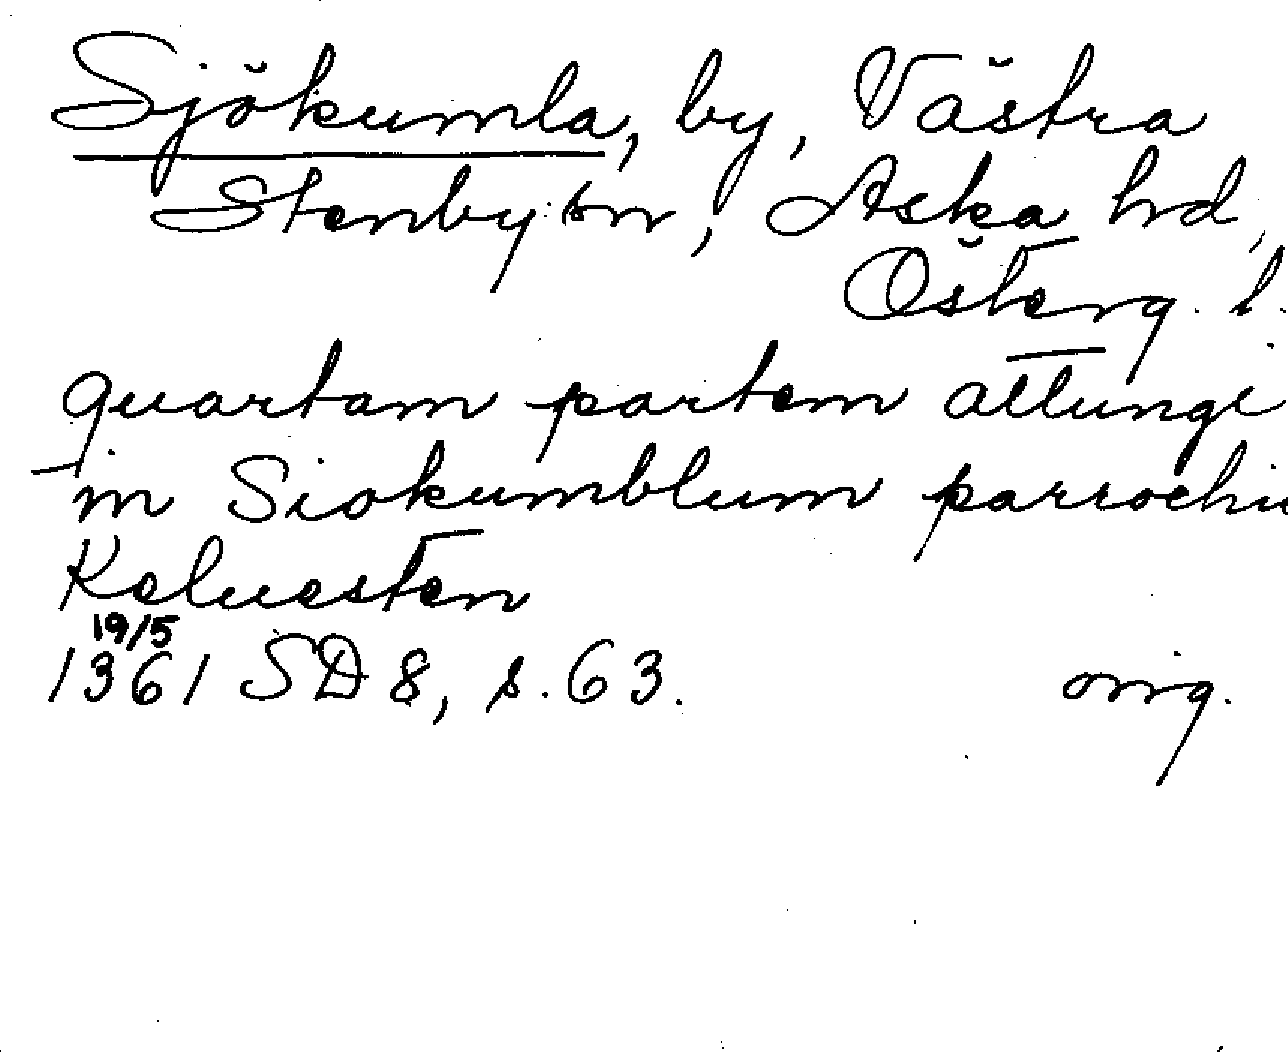 Sjökumla, by, Västra
Stenby sn, Aska hd,
Österg. l.
quartam partem attungi
in Siokumblum parrochie
Keluesten
19/5
1361 SD 8, s. 63. orig.